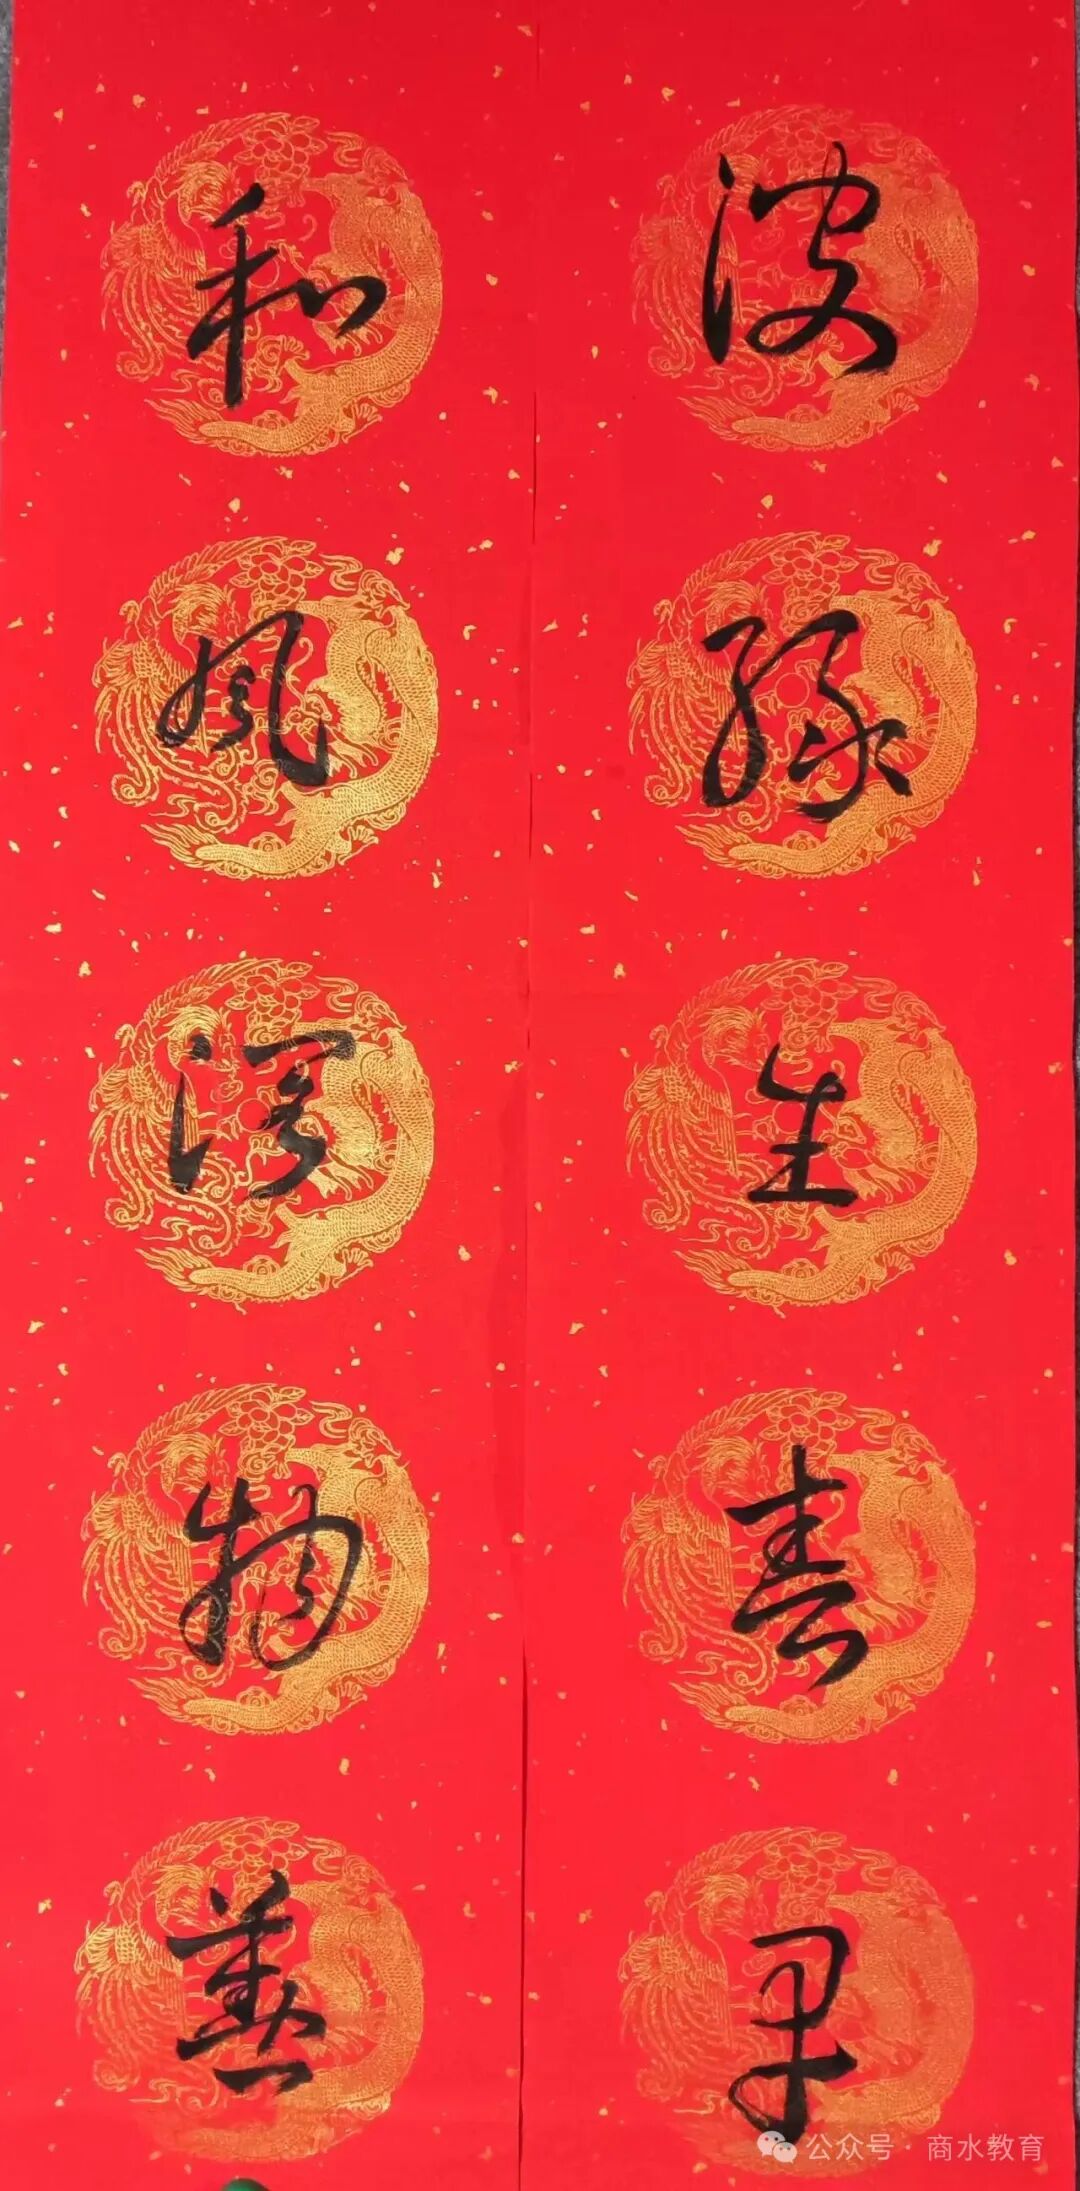 波綠生春早
和風潤物
公众号·商水教育